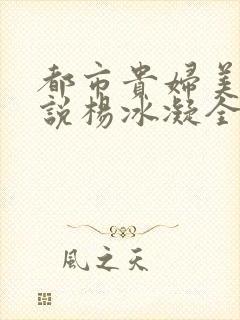 都市貴婦美
說楊冰凝全
風之天